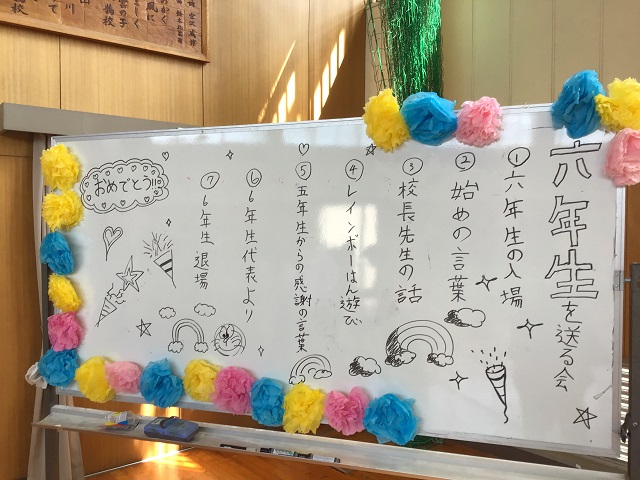 六年生を送る会
①六年生の入場
②始めの言葉
③校長先生の話
④レインボーはん遊び
⑤五年生からの感謝の言葉
⑥6年生代表より
⑦6年生退場
おめでとう!!!